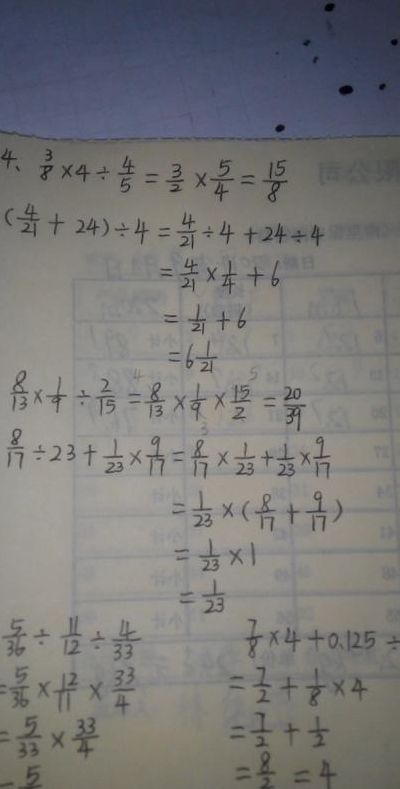 4、3/8 × 4 ÷ 4/5 = 3/2 × 5/4 = 15/8
(4/21 + 24) ÷ 4 = 4/21 ÷ 4 + 24 ÷ 4
= 4/21 × 1/4 + 6
= 1/21 + 6
= 6 1/21
8/13 × 1/9 ÷ 2/15 = 8/13 × 1/9 × 15/2 = 20/39
8/17 ÷ 23 + 1/23 × 9/17 = 8/17 × 1/23 + 1/23 × 9/17
= 1/23 × (8/17 + 9/17)
= 1/23 × 1
= 1/23
5/36 ÷ 11/12 ÷ 4/33
= 5/36 × 12/11 × 33/4
= 5/33 × 33/4
= 5
7/8 × 4 + 0.125 ÷
= 7/2 + 1/8 × 4
= 7/2 + 1/2
= 8/2 = 4